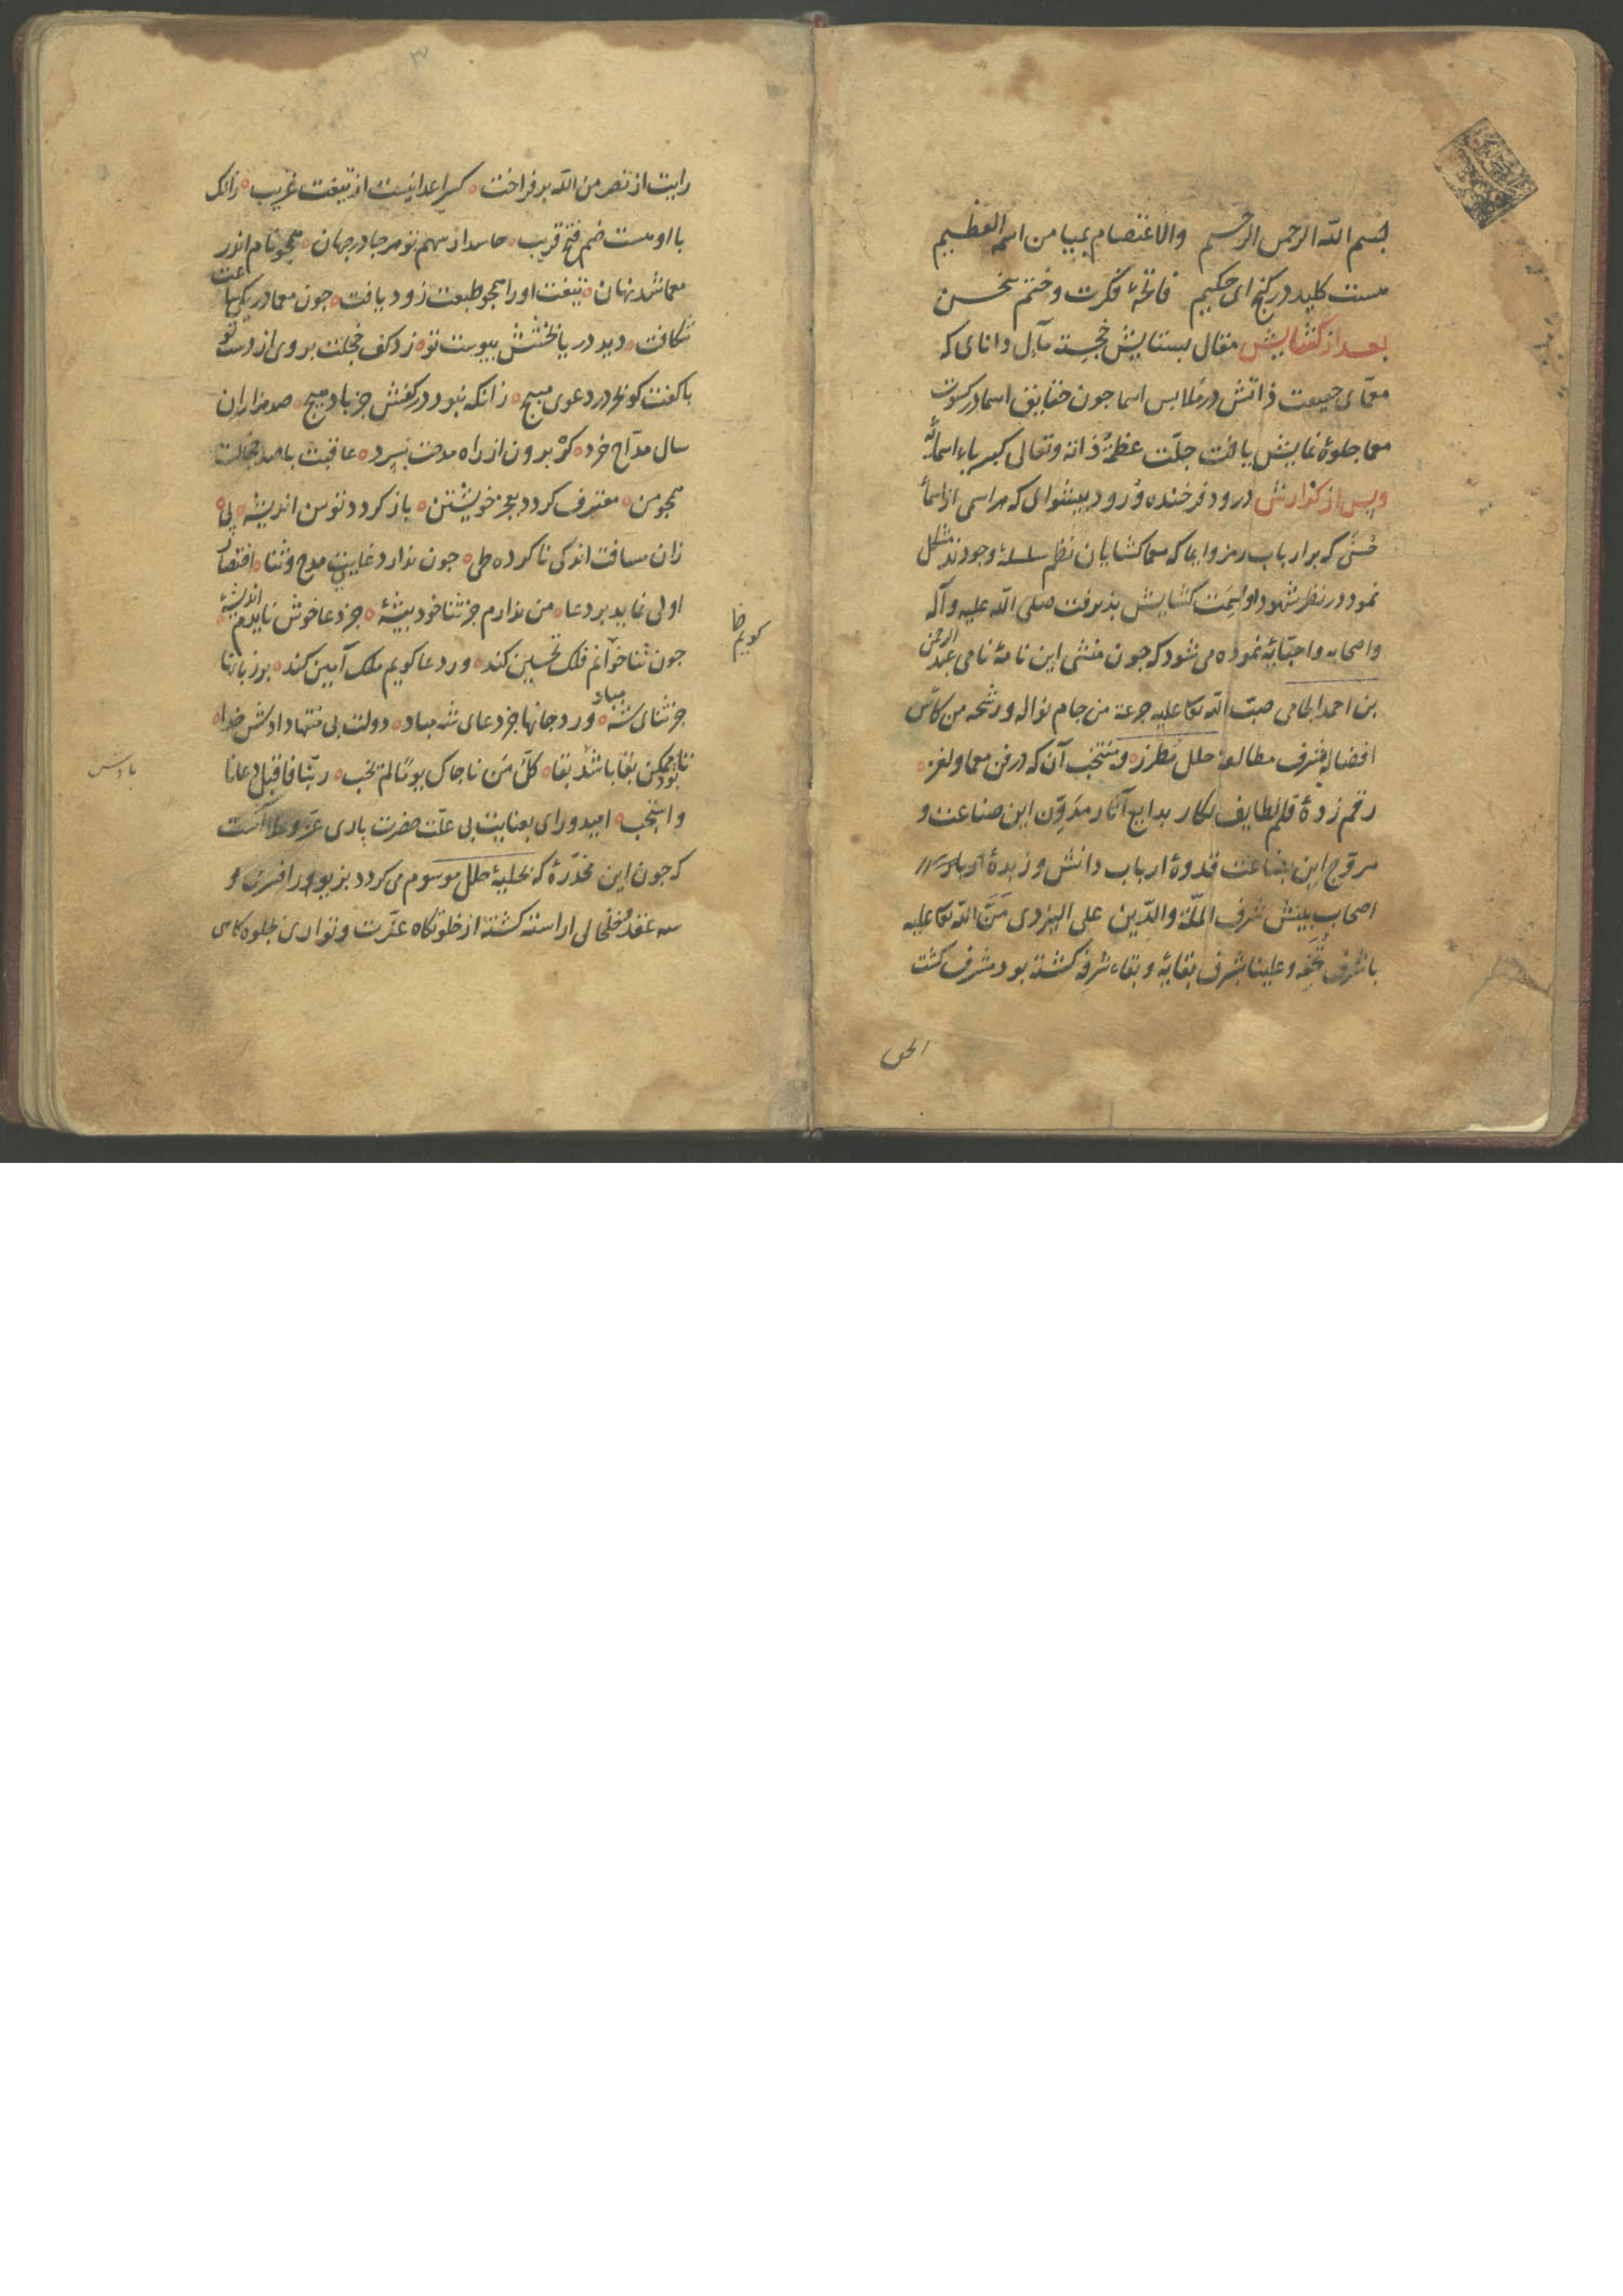 بسم الله الرحمن الرحیم والاعتصام بمیامن اسمه العظیم
هست کلید در کنج ای حکیم فاتحهٔ فکرت و ختم سخن
بعد از کشایش مقال بستایش خجسته مآل دانای که
معمّای حقیقت ذاتش در ملابس اسما جون حقایق اسما در کسوت
معما جلوهٔ نمایش یافت جلّت عظمة ذاته وتعالی کبریاء اسمائه
وپس از کزارش درود فرخنده ورود پیشوای که هر اسمی از اسماء
حسنی که بر ارباب رمز و ایما که معما کشایان نظم سلسلهٔ وجودند مشکل
نمود در نظر شهود او سمت کشایش بذیرفت صلی الله علیه وآله
واصحابه واحبّایه نموده می شود که جون منشی این نامهٔ نامی عبد الرحمن
بن احمد الجامی صبّ الله تعا علیه جرعة من جام نواله ورشحة من کأس
افضاله بشرف مطالعهٔ حلل مطرز ومنتخب آن که در فن معما ولغز
رقم زدهٔ قلم لطایف نکار بدایع آثار مدوّن این صناعت و
مروّج این بضاعت قدوهٔ ارباب دانش وزبدهٔ
اصحاب بینش شرف الملّة والدّین علی الیزدی مَنّ الله تعا علیه
بشرف وعلینا بشرف بقایه وبقاء شرفه کشته بود مشرف کشت
الحق
رایت از نصر من الله بر فراخت کسر اعدا نیست از تیغت غریب زانک
با او هست ضم فتح قریب حاسد از سهم تو هر جا در جهان همجو نام اندر
معما شد نهان تیغت اورا همجو طبعت زود یافت جون معما در یکی ساعت
شکافت دید دریا بخشش بیوست تو زد کف خجلت بروی از دست تو
با کفت کو دم در دعوی مسیح زانکه نبود در کفش جز باد هیج صد هزاران
سال مدّاح خرد کر برون از راه مدحت نسپرد عاقبت با صد خجالت
همجو من معترف کردد بعجز خویشتن باز کردد توسن اندیشه پی
زان مسافت اندکی ناکرده طی جون ندارد غایت مدح وثنا اقتصار
اولی نماید بر دعا من ندارم جز ثنا خود بیشهٔ جز دعا خوش نایدم اندیشهٔ
جون ثنا خوانم فلک تحسین کند ور دعا کویم ملک آمین کند بر زبانها
جز ثنای شه مباد ورد جانها جز دعای شه مباد دولت بی منتها دادش خدا
تا بود ممکن بقا باشد بقا کلّ من ناجاک یوما لم یخب ربّنا فاقبل دعانا
واستجب امیدواری بعنایت بی علّت حضرت باری عزّ وعلا آنست
که جون این مخدّرهٔ که بحلیهٔ حلل موسوم می کردد بزیور افسری و
سه عقد وخلخالی اراسته کشته از خلوتکاه عزّت وتواری بجلوه کاه
کویم